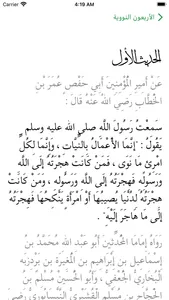 Carrier 4:19 AM
الأربعون النووية
الحديث الأول
عَنْ أَمِيرِ الْمُؤْمِنِينَ أَبِي حَفْصٍ عُمَرَ بْنِ
الْخَطَّابِ رَضِيَ اللهُ عَنْهُ قَالَ :
سَمِعْتُ رَسُولَ اللَّهِ صلى الله عليه وسلم
يَقُولُ : "إنَّمَا الْأَعْمَالُ بِالنِّيَّاتِ ، وَإِنَّمَا لِكُلِّ
امْرِئٍ مَا نَوَى ، فَمَنْ كَانَتْ هِجْرَتُهُ إلَى اللَّهِ
وَرَسُولِهِ فَهِجْرَتُهُ إلَى اللَّهِ وَرَسُولِهِ ، وَمَنْ كَانَتْ
هِجْرَتُهُ لِدُنْيَا يُصِيبُهَا أَوْ امْرَأَةٍ يَنْكِحُهَا فَهِجْرَتُهُ
إلَى مَا هَاجَرَ إلَيْهِ".
رَوَاهُ إِمَامَا الْمُحَدِّثِينَ أَبُو عَبْدِ اللهِ مُحَمَّدُ بنُ
إِسْمَاعِيل بن إِبْرَاهِيم بن الْمُغِيرَة بن بَرْدِزبَه
الْبُخَارِيُّ الْجُعْفِيُّ ، وَأَبُو الْحُسَيْنِ مُسْلِمُ بنُ
الْحَجَّاج بن مُسْلِم الْقُشَيْرِيُّ النَّيْسَابُورِيُّ رَضِيَ